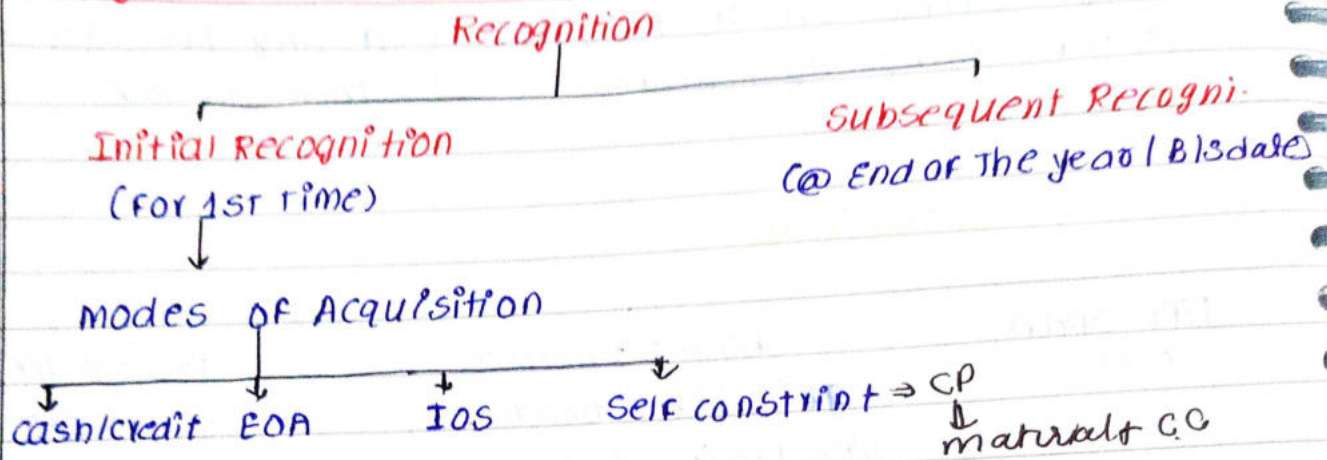 Recognition
Initial Recognition
Subsequent Recogni.
(For 1st Time)
(@ End of The year / B/s date)
modes of Acquisition
cash/credit EOA IOS Self constrint ⇒ CP
material+ C.C